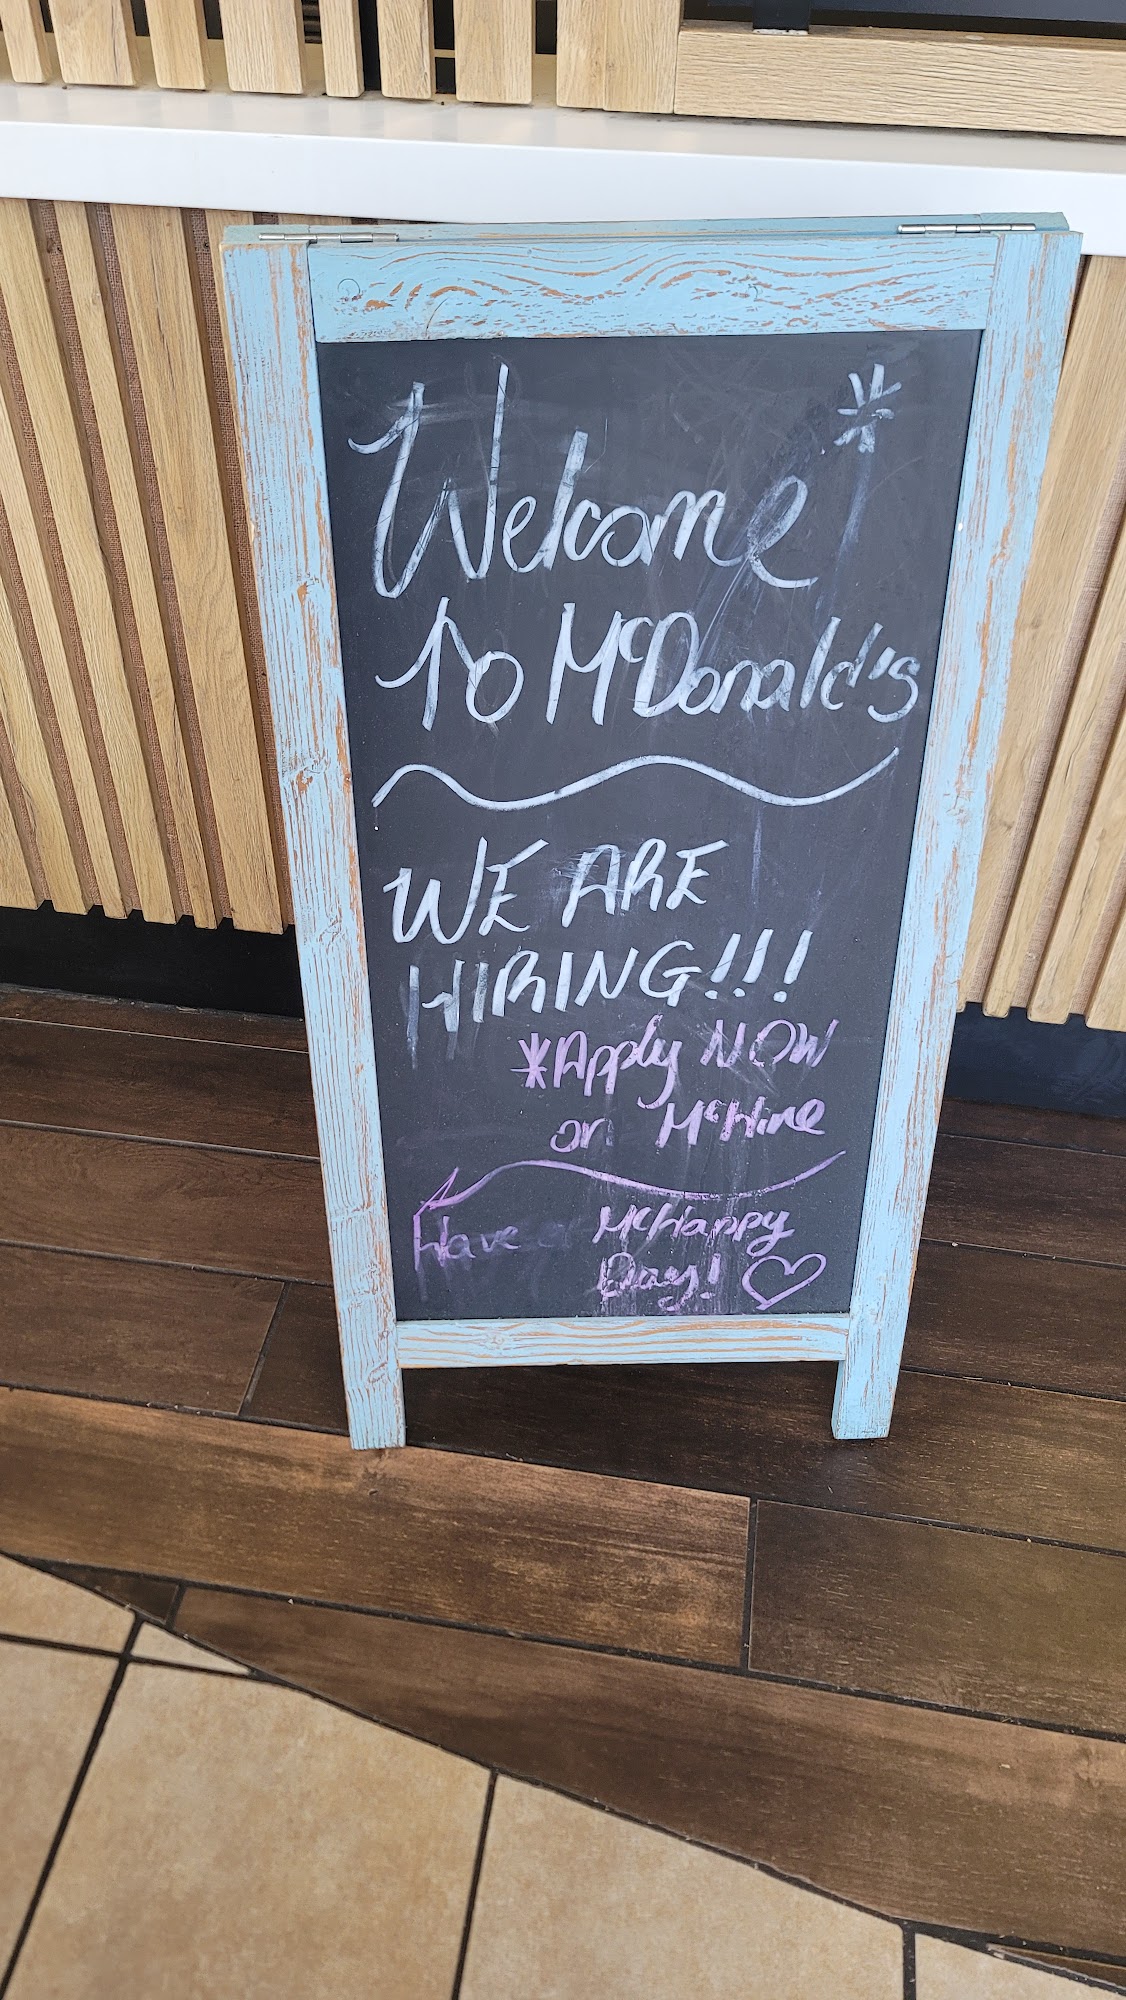 Welcome*
To McDonald's
WE ARE
HIRING!!!
*Apply NOW
on McHire
Have a McHappy
Day!